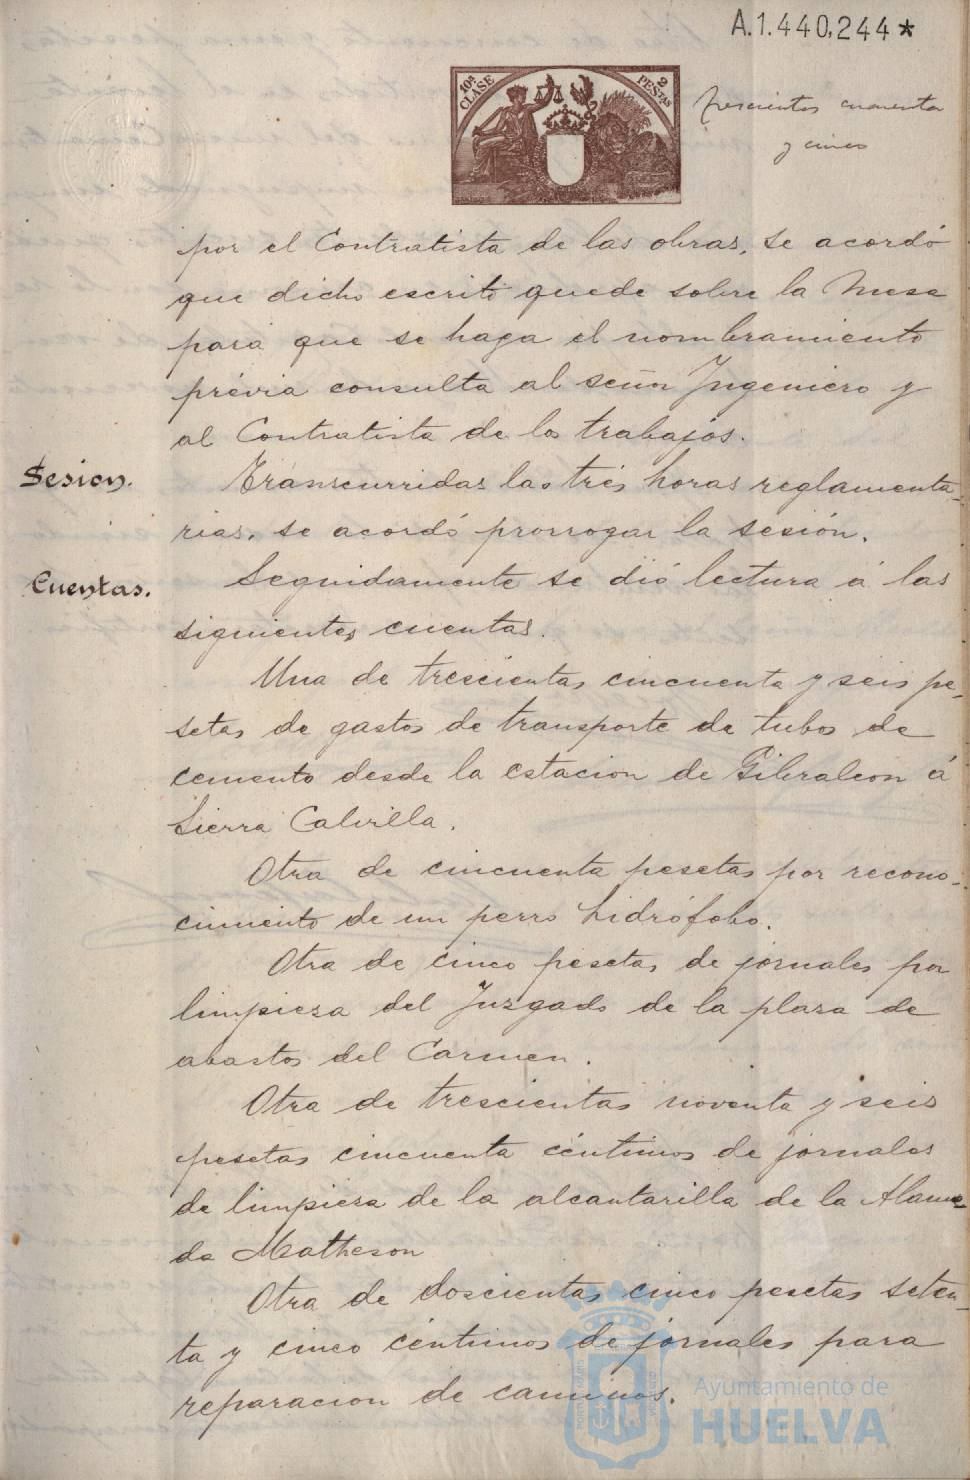 A.1.440,244*
10ª CLASE
2 PESTAS
trescientos cuarenta
y cinco
por el Contratista de las obras, se acordó
que dicho escrito quede sobre la Mesa
para que se haga el nombramiento
prévia consulta al señor Ingeniero y
al Contratista de los trabajos.
Sesion.
Transcurridas las tres horas reglamenta-
rias, se acordó prorrogar la sesión.
Cuentas.
Seguidamente se dió lectura á las
siguientes cuentas.
Una de trescientas cincuenta y seis pe-
setas de gastos de transporte de tubos de
cemento desde la estacion de Gibraleon á
Sierra Calvilla.
Otra de cincuenta pesetas por recono-
cimiento de un perro hidrófobo.
Otra de cinco pesetas de jornales por
limpiesa del Juzgado de la plasa de
abastos del Carmen.
Otra de trescientas noventa y seis
pesetas cincuenta céntimos de jornales
de limpiesa de la alcantarilla de la Alame-
da Matheson
Otra de doscientas cinco pesetas seten-
ta y cinco céntimos de jornales para
reparacion de caminos.
Ayuntamiento de
HUELVA